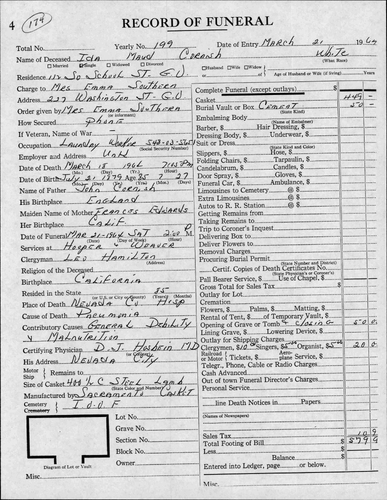 4 179 RECORD OF FUNERAL
Total No. Yearly No. 199 Date of Entry March 21 1964
Name of Deceased Ida Maud Cornish White
(What Race)
Married Single Widowed Divorced Husband Wife Widow
Residence 112 So School St. G.V. Age of Husband or Wife (if living) Years
Charge to Mrs Emma Southern
Address 237 Washington St- G.V
Order given by Mrs Emma Southern
How Secured Phone
If Veteran, Name of War
Occupation Laundry Worker
(Social Security Number)
Employer and Address Unkn
Date of Death March 18 1964 7:15 PM
Date of Birth July 21 1879 Age 85 7 27
Name of Father John Cornish
His Birthplace England
Maiden Name of Mother Frances Edwards
Her Birthplace Calif
Date of Funeral Mar 21-1964 Sat 2:00 P M
Services at Hooper & Weaver
Clergyman Leo Hamilton
Religion of the Deceased
Birthplace California
Resided in the State 85
Place of Death Nevada Co Hosp
Cause of Death Pneumonia
Contributory Causes General Debility
& Malnutrition
Certifying Physician D.J. Hosbein MD
His Address Nevada City
Motor Ship Remains to
Size of Casket Steel
Manufactured by Sacramento Casket
Cemetery Crematory I O O F
Lot No.
Grave No.
Section No.
Block No.
Owner
Diagram of Lot or Vault
Misc.
Complete Funeral (except outlays) $
Casket 449 -
Burial Vault or Box Cement 50 -
(State Kind)
Embalming Body
Barber, $ Hair Dressing, $
Dressing Body, $ Underwear, $
Suit or Dress
(State Kind and Color)
Slippers, $ Hose, $
Folding Chairs, $ Tarpaulin, $
Candelabrum, $ Candles, $
Door Spray, $ Gloves, $
Funeral Car, $ Ambulance, $
Limousines to Cemetery @ $
Extra Limousines @ $
Autos to R. R. Station @ $
Getting Remains from
Taking Remains to
Trip to Coroner's Inquest
Delivering Box to
Deliver Flowers to
Removal Charges
Procuring Burial Permit
(State Number and District)
Certif. Copies of Death Certificates No.
(State Physician's or Coroner's)
Pall Bearer Service, $ Use of Chapel, $
Gross Total for Sales Tax $
Outlay for Lot
Cremation
Flowers, $ Palms, $ Matting, $
Rental of Tent, $ of Temporary Vault, $
Opening of Grave or Tomb & Closing 50 0
Lining Grave, $ Lowering Device, $
Outlay for Shipping Charges
Clergymen, $10 Singers, $5 Organist, $5 20 0
Railroad or Motor Tickets, $ Aeroplane Service, $
Telegr., Phone, Cable or Radio Charges
Cash Advanced
Out of town Funeral Director's Charges
Personal Service
line Death Notices in Papers
(Names of Newspapers)
Sales Tax
Total Footing of Bill $
Less $
Balance $
Entered into Ledger, page or below.
Misc.